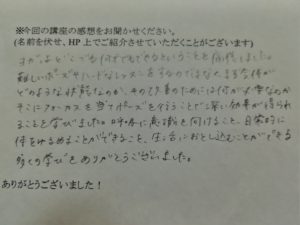 ※今回の講座の感想をお聞かせください。
(名前を伏せ、HP上でご紹介させていただくことがございます)
ヨガはどこでも何才でもできるということを実感しました。
難しいポーズやハードなレッスンをするのではなく、まず今体が
どのような状態なのか、その改善のためには何が必要なのか
そこにフォーカスを当てポーズを行うことで深い効果が得られ
ることを学びました。呼吸に意識を向けること、日常的に
体をゆるめることができること、生活におとし込むことができる
多くの学びをありがとうございました。
ありがとうございました!